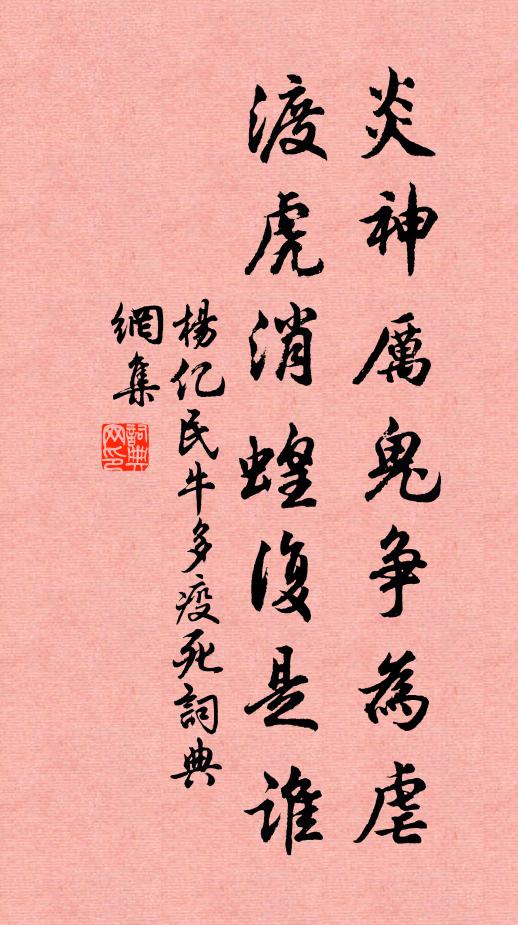 炎神厲鬼争為虐
渡虎消蝗復是誰
楊亿民牛多疫死詞典
網集
詞典網印